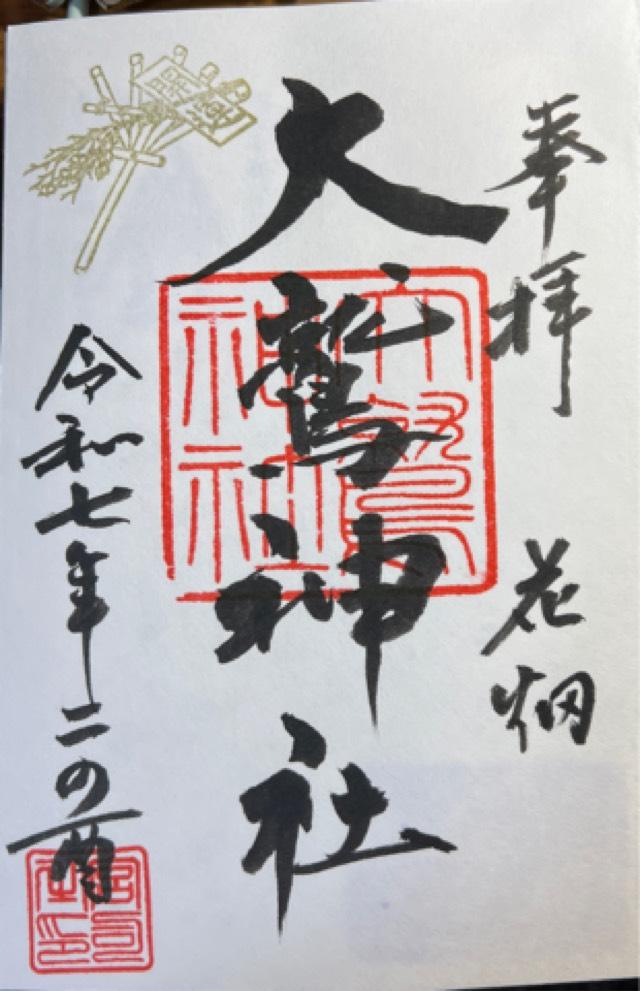 奉拝 花畑
大鷲神社
大鷲神社
令和七年二の酉